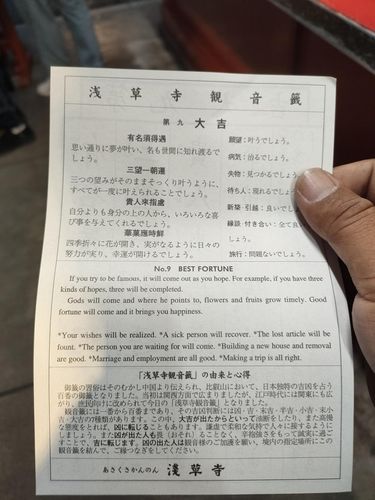 浅草寺観音籤
第九 大吉
有名須得遇
思い通りに夢が叶い、名も世間に知れ渡るで
しょう。
三望一朝遷
三つの望みがそのままそっくり叶うように、
すべてが一度に叶えられることでしょう。
貴人來指處
自分よりも身分の上の人から、いろいろな喜
び事を与えてくれるでしょう。
華菓應時鮮
四季折々に花が開き、実がなるように日々の
努力が実り、幸運が開けるでしょう。
願望:叶うでしょう。
病気:治るでしょう。
失物:見つかるでしょう
待ち人:現れるでしょう
新築・引越:良いでし
縁談・付き合い:全て良い
しょう。
旅行:問題ないでしょう。
No.9 BEST FORTUNE
If you try to be famous, it will come out as you hope. For example, if you have three
kinds of hopes, three will be completed.
Gods will come and where he points to, flowers and fruits grow timely. Good
fortune will come and it brings you happiness.
*Your wishes will be realized. *A sick person will recover. *The lost article will be
fount. *The person you are waiting for will come. *Building a new house and removal
are good. *Marriage and employment are all good. *Making a trip is all right.
「浅草寺観音籤」の由来と心得
御籤の習俗はそのむかし中国より伝えられ、比叡山において、日本独特の吉凶を占う
百番の御籤となりました。当初は関西方面で広まりましたが、江戸時代には関東にも広
がり、庶民向けに改められて今日の「浅草寺観音籤」となりました。
観音籤には一番から百番まであり、その吉凶判断には凶・吉・末吉・半吉・小吉・末小
吉・大吉の7種類があります。この中、大吉が出たからといって、油断をしたり、また高慢
な態度をとれば、凶に転じることもあります。謙虚で柔和な気持で人々に接するように
しましょう。また凶が出た人も畏(おそ)れることなく、辛抱強さをもって誠実に過ご
すことで、吉に転じます。凶の出た人は観音様のご加護を願い、境内の指定場所にこの
観音籤を結んで、ご縁つなぎをしてください。
あさくさかんのん 浅草寺